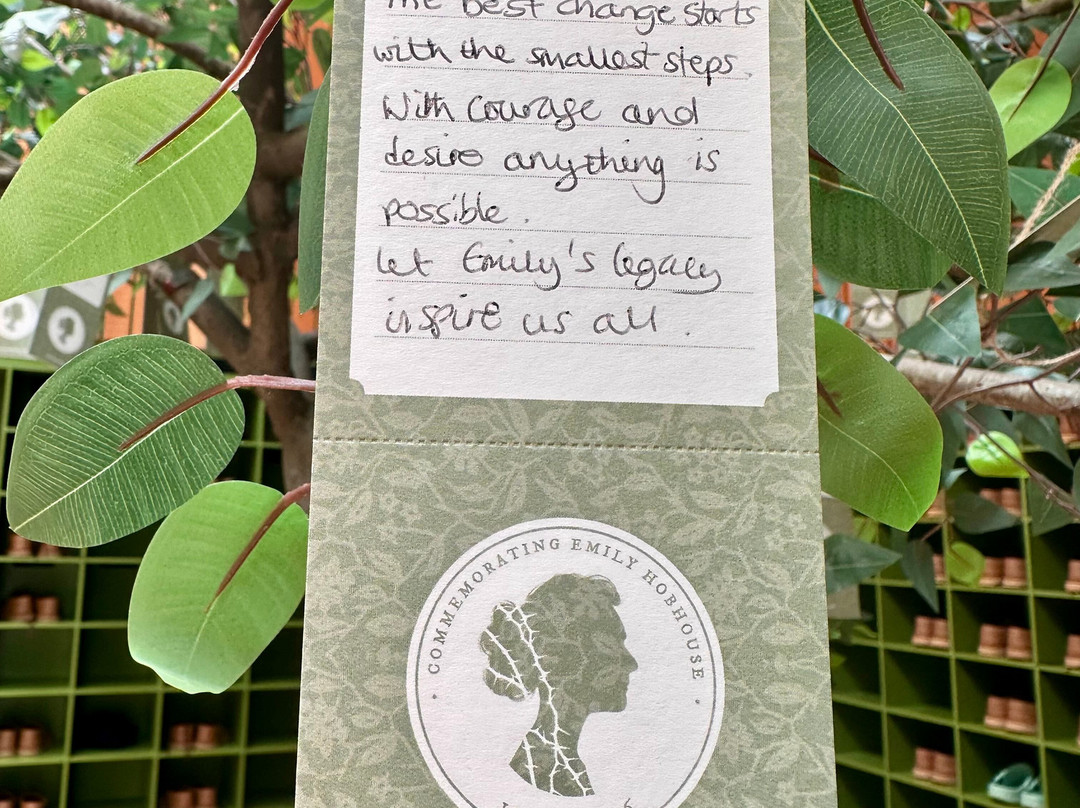 The best change starts
with the smallest steps.
With courage and
desire anything is
possible.
Let Emily's legacy
inspire us all.
· COMMEMORATING EMILY HOBHOUSE ·